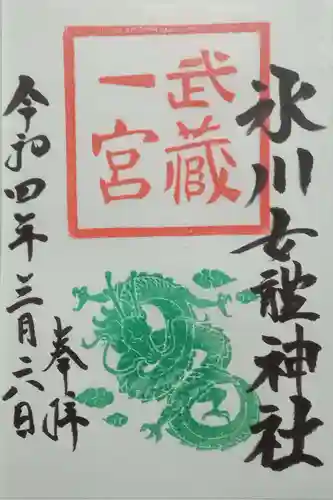 氷川女體神社
武藏
一宮
奉拝
令和四年三月二八日